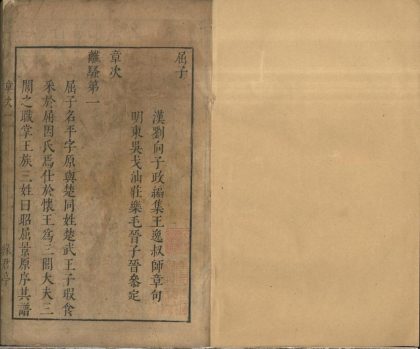 屈子
漢劉向子政編集王逸叔師章句
明東吳戈汕莊樂毛晉子晉參定
章次
離騷第一
屈子名平字原與楚同姓楚武王子瑕食
采於屈因氏焉仕於懷王爲三閭大夫三
閭之職掌王族三姓曰昭屈景原序其譜
章次一